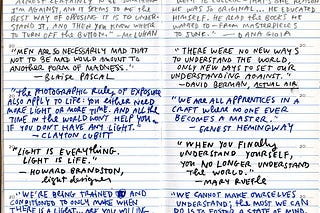 ALMOST CERTAINLY TO BE SOMETHING
I'M AGAINST, AND IT SEEMS TO ME THE
BEST WAY OF OPPOSING IT IS TO UNDER-
STAND IT, AND THEN YOU KNOW WHERE
TO TURN OFF THE BUTTON." — McLUHAN
"MEN ARE SO NECESSARILY MAD THAT
NOT TO BE MAD WOULD AMOUNT TO
ANOTHER FORM OF MADNESS."
— BLAISE PASCAL
"THE PHOTOGRAPHIC RULES OF EXPOSURE
ALSO APPLY TO LIFE: YOU EITHER NEED
MAKE LIGHT OR MORE TIME. AND ALL THE
TIME IN THE WORLD WON'T HELP YOU
IF YOU DON'T HAVE ANY LIGHT."
— CLAYTON CUBITT
"LIGHT IS EVERYTHING.
LIGHT IS LIFE."
— HOWARD BRANDSTON,
light designer
"WE'RE BEING TRAINED AND
CONDITIONED TO ONLY MAKE WHEN
THERE IS A LIGHT... ARE YOU WILLING
WAS SO ORIGINAL. HE EDUCATED
HIMSELF. HE READ THE BOOKS HE
WANTED TO — FROM MASTERPIECES
TO JUNK." — DANA GIOIA
"THERE WERE NO NEW WAYS
TO UNDERSTAND THE WORLD,
ONLY NEW DAYS TO SET OUR
UNDERSTANDING AGAINST."
— DAVID BERMAN, ACTUAL AIR
"WE ARE ALL APPRENTICES IN A
CRAFT WHERE NO ONE EVER
BECOMES A MASTER."
— ERNEST HEMINGWAY
"WHEN YOU FINALLY
UNDERSTAND YOURSELF,
YOU NO LONGER UNDERSTAND
THE WORLD."
— MARY RUEFLE
"WE CANNOT MAKE OURSELVES
UNDERSTAND; THE MOST WE CAN
DO IS TO FOSTER A STATE OF MIND